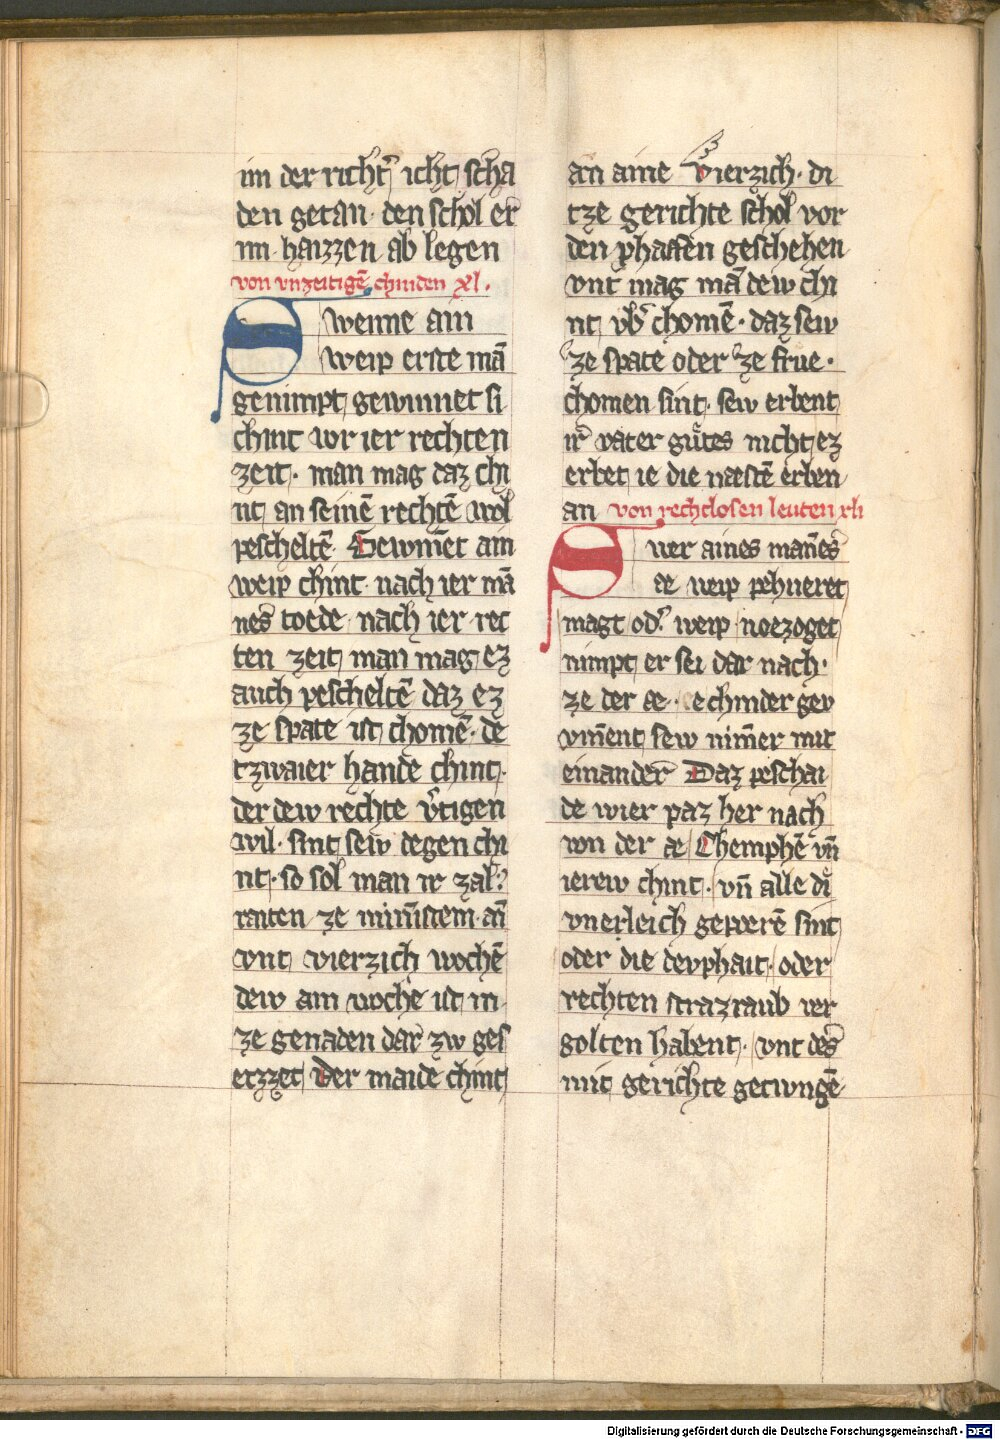 im der richt̾ icht scha
den getan · den schol er
im · haizzen ab legen
von vnzeitigē chinden xl .
Swenne ain
weip erste mā
genimpt gewinnet si
chint wr ier rechten
zeit · man mag daz chi
nt an seinē rechtē wol
pescheltē · Gewin̄et ain
weip chint · nach ier mā
nes toede · nach ier rec
ten zeit man mag ez
auch pescheltē daz ez
ze spate ist chomē · de
tzwaier hande chint ·
der dew rechte v̾tigen
wil · sint sew degen chi
nt · so sol man ir zal
raiten ze min̄istem · an̄
vnt vierzich wochē
dew ain woche ist in
ze genaden dar zw ges
etzzet Der maide chint
an aine vierzich · di
tze gerichte schol vor
den phaffen geschehen
vnt mag mā dew chi
nt vb̾ chomē · daz sew
ze spate oder ze frue ·
chomen sint · sew erbent
ir vater gůtes nicht ez
erbet ie die næstē erben
an von rechtlosen leuten xli
Swer aines man̄es
æ weip pehueret
magt od̾ weip noezoget
nimpt er sei dar nach ·
ze der æ · echinder gew
vnn̄ent sew nim̄er mit
einander Daz peschai
de wier paz her nach
von der æ Chemphē vn̄
ierew chint · vn̄ alle di
vnerleich geperē sint
oder die devphait · oder
rechten strazraub ver
golten habent · vnt des
mit gerichte getwngē
Digitalisierung gefördert durch die Deutsche Forschungsgemeinschaft - DFG